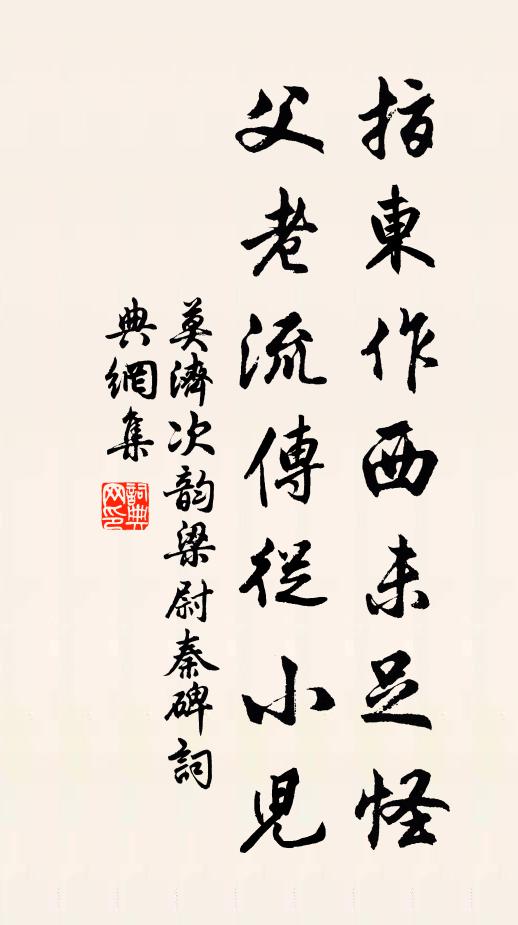 指東作西未足怪
父老流傳從小兒
莫濟次韵梁尉秦碑詞
典網集
詞典网印